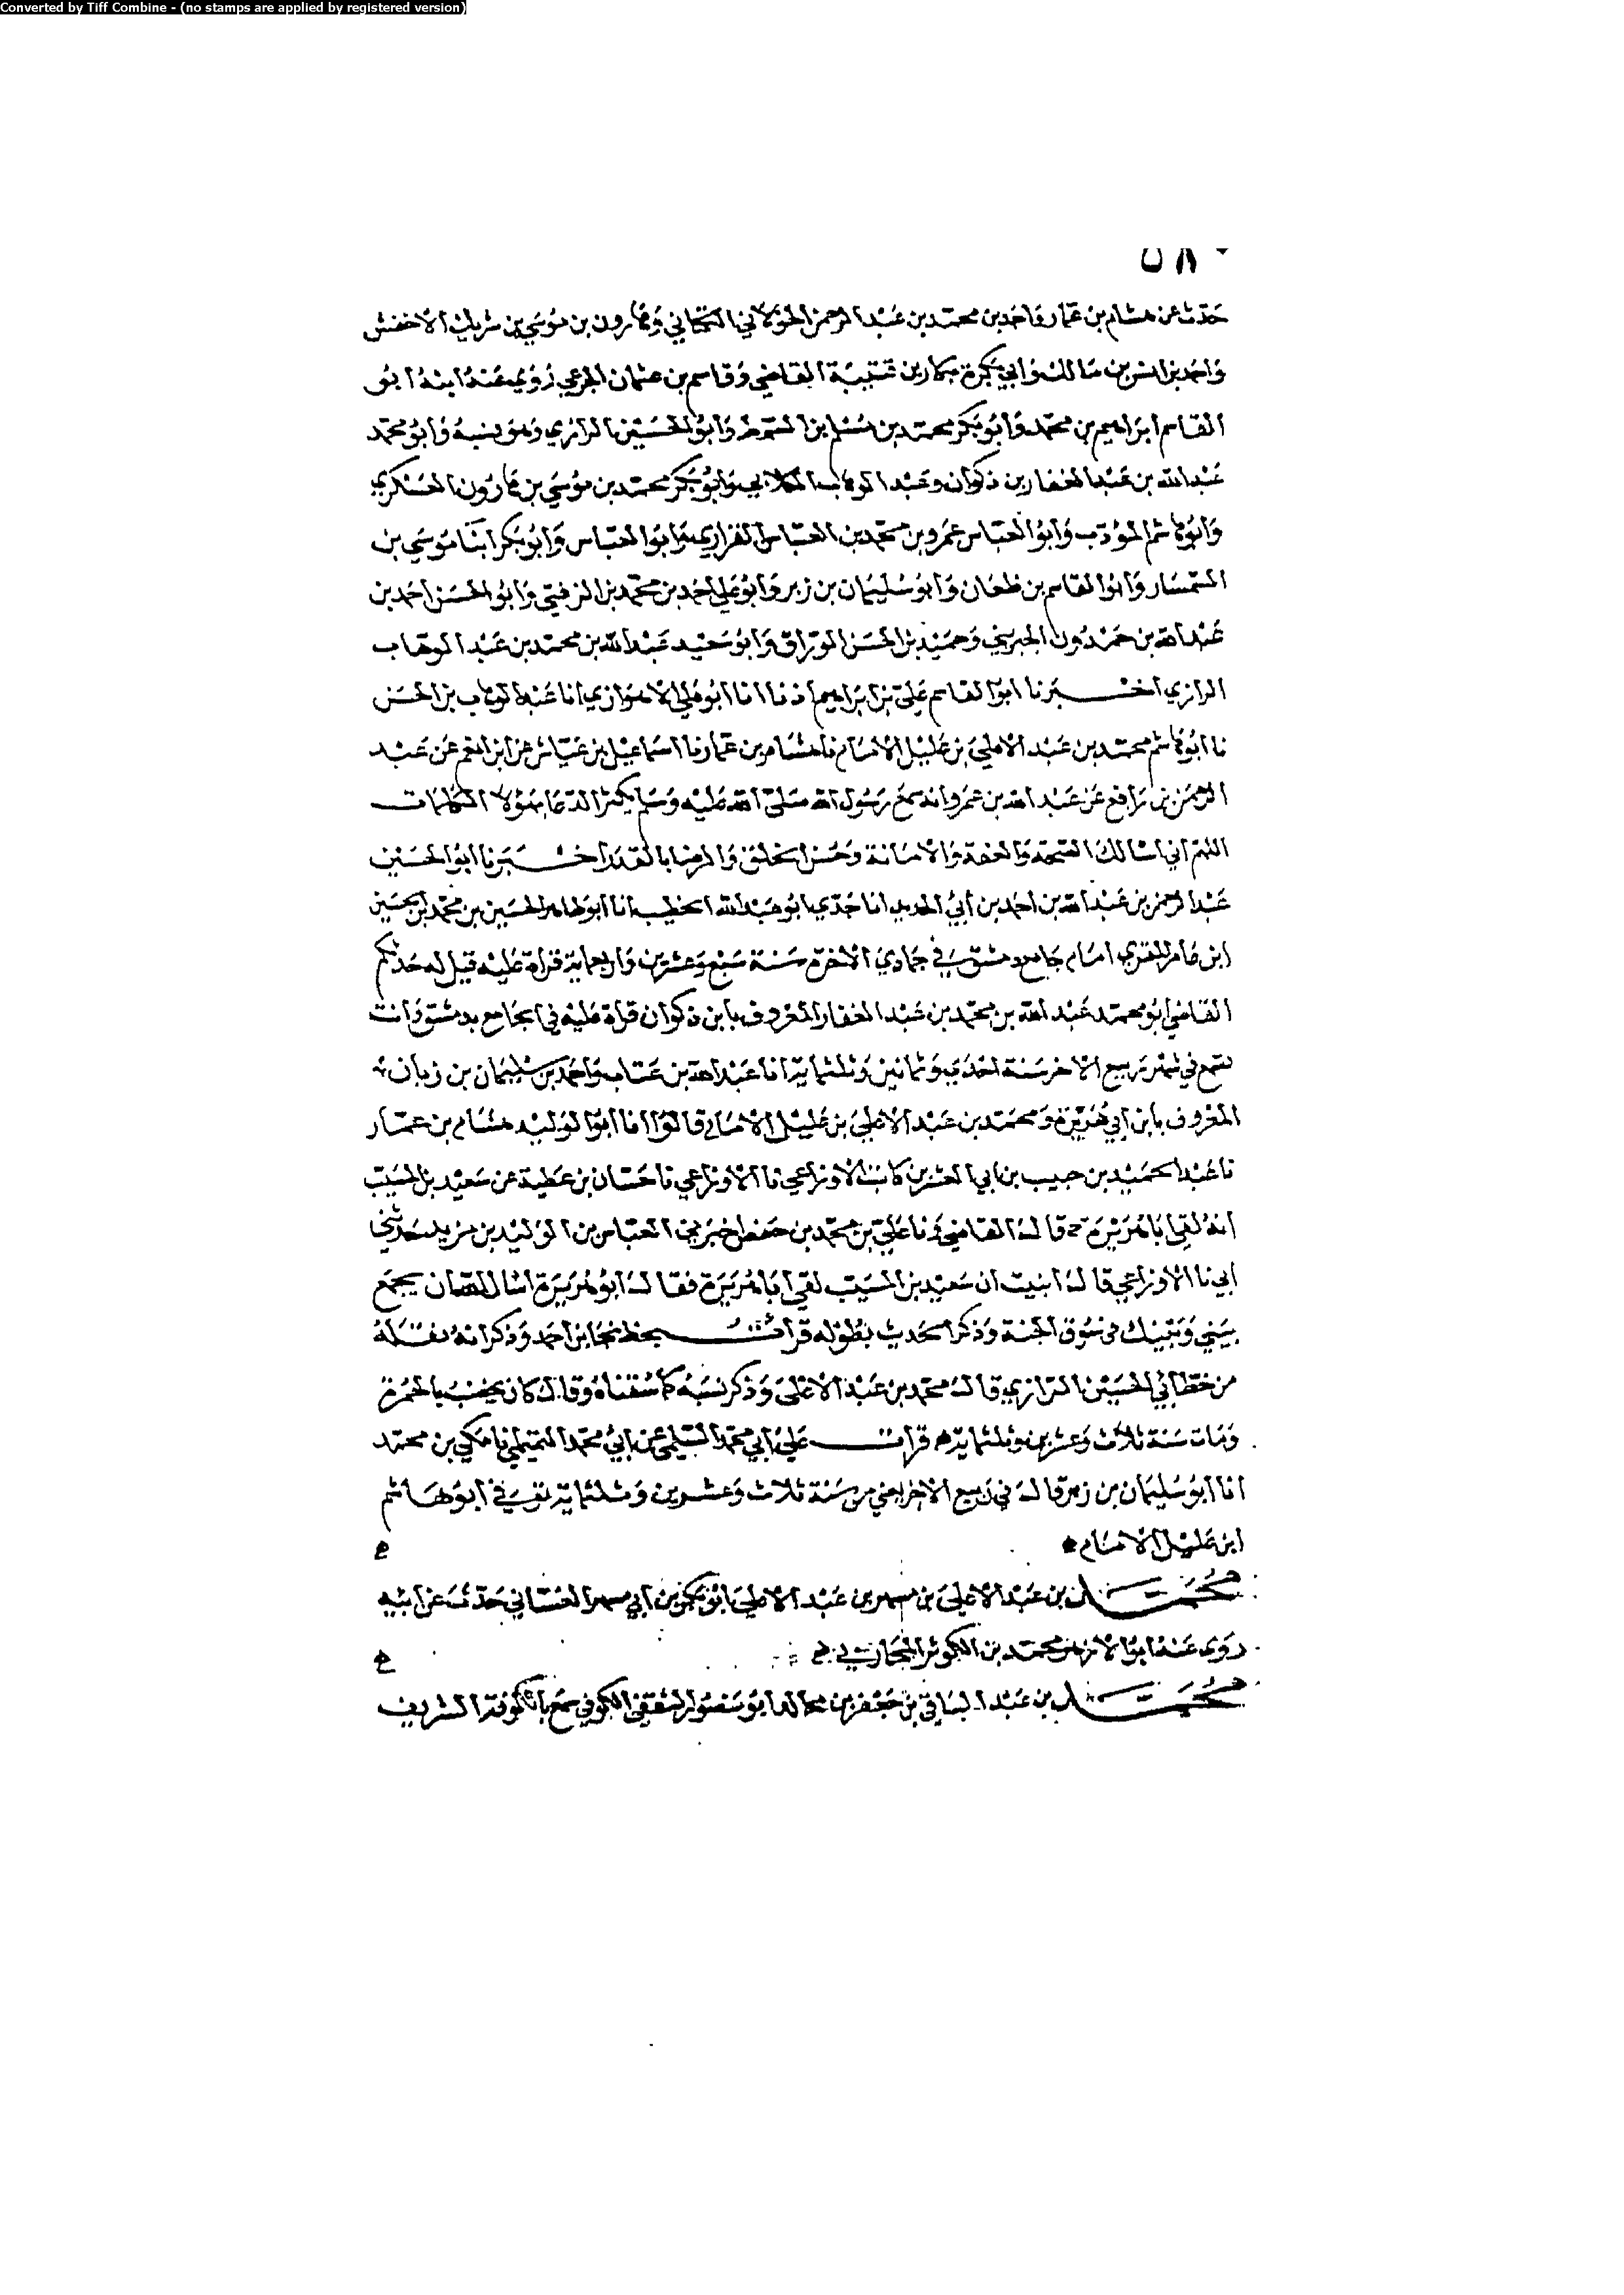 Converted by Tiff Combine - (no stamps are applied by registered version)
٥٨٠
حدث عن هشام بن عمار واحمد بن محمد بن عبد الرحمن الخولاني الكتاني وهارون بن موسى بن شريك الاخفش
واحمد بن انس بن مالك وابي بكرة بكار بن قتيبة القاضي وقاسم بن عثمان الجوعي روى عنه ابنه ابو
القاسم ابراهيم بن محمد وابو بكر محمد بن مسلم بن السمط وابو الحسين الرازي وهو نسبه وابو محمد
عبد الله بن عبد الغفار بن ذكوان وعبد الوهاب الكلابي وابو بكر محمد بن موسى بن هارون العسكري
وابو هاشم المؤدب وابو العباس عمرو بن محمد بن العباس الفزاري وابو العباس وابو بكر ابنا موسى بن
السمسار وابو القاسم بن طعان وابو سليمان بن زبر وابو علي احمد بن محمد بن الزفتي وابو الحسن احمد بن
عبد الله بن حمدون الجبريني وحميد بن الحسن الوراق وابو سعيد عبد الله بن محمد بن عبد الوهاب
الرازي اخبرنا ابو القاسم علي بن ابراهيم اذنا انا ابو علي الاهوازي انا عبد الوهاب بن الحسن
نا ابو هاشم محمد بن عبد الاعلى بن عليل الامام نا هشام بن عمار نا اسماعيل بن عياش عن ابن انعم عن عبد
الرحمن بن رافع عن عبد الله بن عمرو انه سمع رسول الله صلى الله عليه وسلم يكثر الدعا بهؤلا الكلمات
اللهم اني اسالك الصحة والعفة والامانة وحسن الخلق والرضا بالقدر اخبرنا ابو الحسين
عبد الرحمن بن عبد الله بن احمد بن ابي الحديد انا جدي ابو عبد الله الخطيب انا ابو طاهر الحسين بن محمد بن الحسين
ابن عامر المقري امام جامع دمشق في جمادى الاخرة سنة سبع وعشرين واربعماية قراة عليه قيل له حدثكم
القاضي ابو محمد عبد الله بن محمد بن عبد الغفار المعروف بابن ذكوان قراة عليه في الجامع بدمشق وانت
تسمع في شهر ربيع الاخر سنة احدى وثمانين وثلثماية انا عبد الله بن عتاب واحمد بن سليمان بن زبان
المعروف بابن ابي هريرة ومحمد بن عبد الاعلى بن عليل الامام قالوا انا ابو الوليد هشام بن عمار
نا عبد الحميد بن حبيب بن ابي العشرين كاتب الاوزاعي نا الاوزاعي نا حسان بن عطية عن سعيد بن المسيب
انه لقي ابا هريرة ح قال القاضي ونا علي بن محمد بن حفص اخبرني العباس بن الوليد بن مزيد حدثني
ابي نا الاوزاعي قال انبيت ان سعيد بن المسيب لقي ابا هريرة فقال ابو هريرة اسال الله ان يجمع
بيني وبينك في سوق الجنة وذكر الحديث بطوله قرات بخط نجا بن احمد وذكر انه نقله
من خط ابي الحسين الرازي قال محمد بن عبد الاعلى وذكر نسبه كما سقناه وقال كان يخضب بالحمرة
ومات سنة ثلاث وعشرين وثلثماية قرات علي ابي محمد السلمي عن ابي محمد التميمي نا مكي بن محمد
انا ابو سليمان بن زبر قال في ربيع الاخر يعني من سنة ثلاث وعشرين وثلثماية توفي ابو هاشم
ابن عليل الامام
محمد بن عبد الاعلى بن مسهر بن عبد الاعلى ابو بكر بن ابي مسهر الغساني حدث عن ابيه
روى عنه ابو الازهر محمد بن الكوثر المحاربي
محمد بن عبد الباقي بن جعفر بن مجالد ابو منصور الثقفي الكوفي سمع بالكوفة الشريف